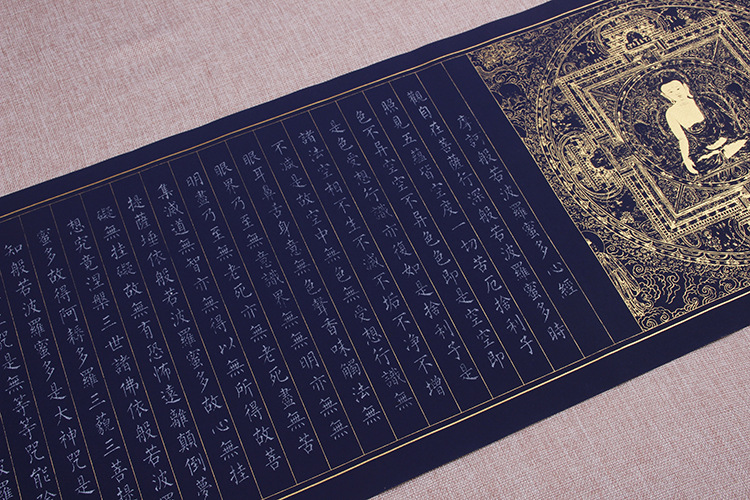 摩訶般若波羅蜜多心經
觀自在菩薩行深般若波羅蜜多時
照見五蘊皆空度一切苦厄捨利子
色不異空空不異色色即是空空即
是色受想行識亦復如是捨利子是
諸法空相不生不滅不垢不淨不增
不減是故空中無色無受想行識無
眼耳鼻舌身意無色聲香味觸法無
眼界乃至無意識界無無明亦無無
明盡乃至無老死亦無老死盡無苦
集滅道無智亦無得以無所得故菩
提薩埵依般若波羅蜜多故心無挂
礙無挂礙故無有恐怖遠離顛倒夢
想究竟涅槃三世諸佛依般若波
蜜多故得阿耨多羅三藐三菩提
知般若波羅蜜多是大神咒是
咒是無等等咒能除